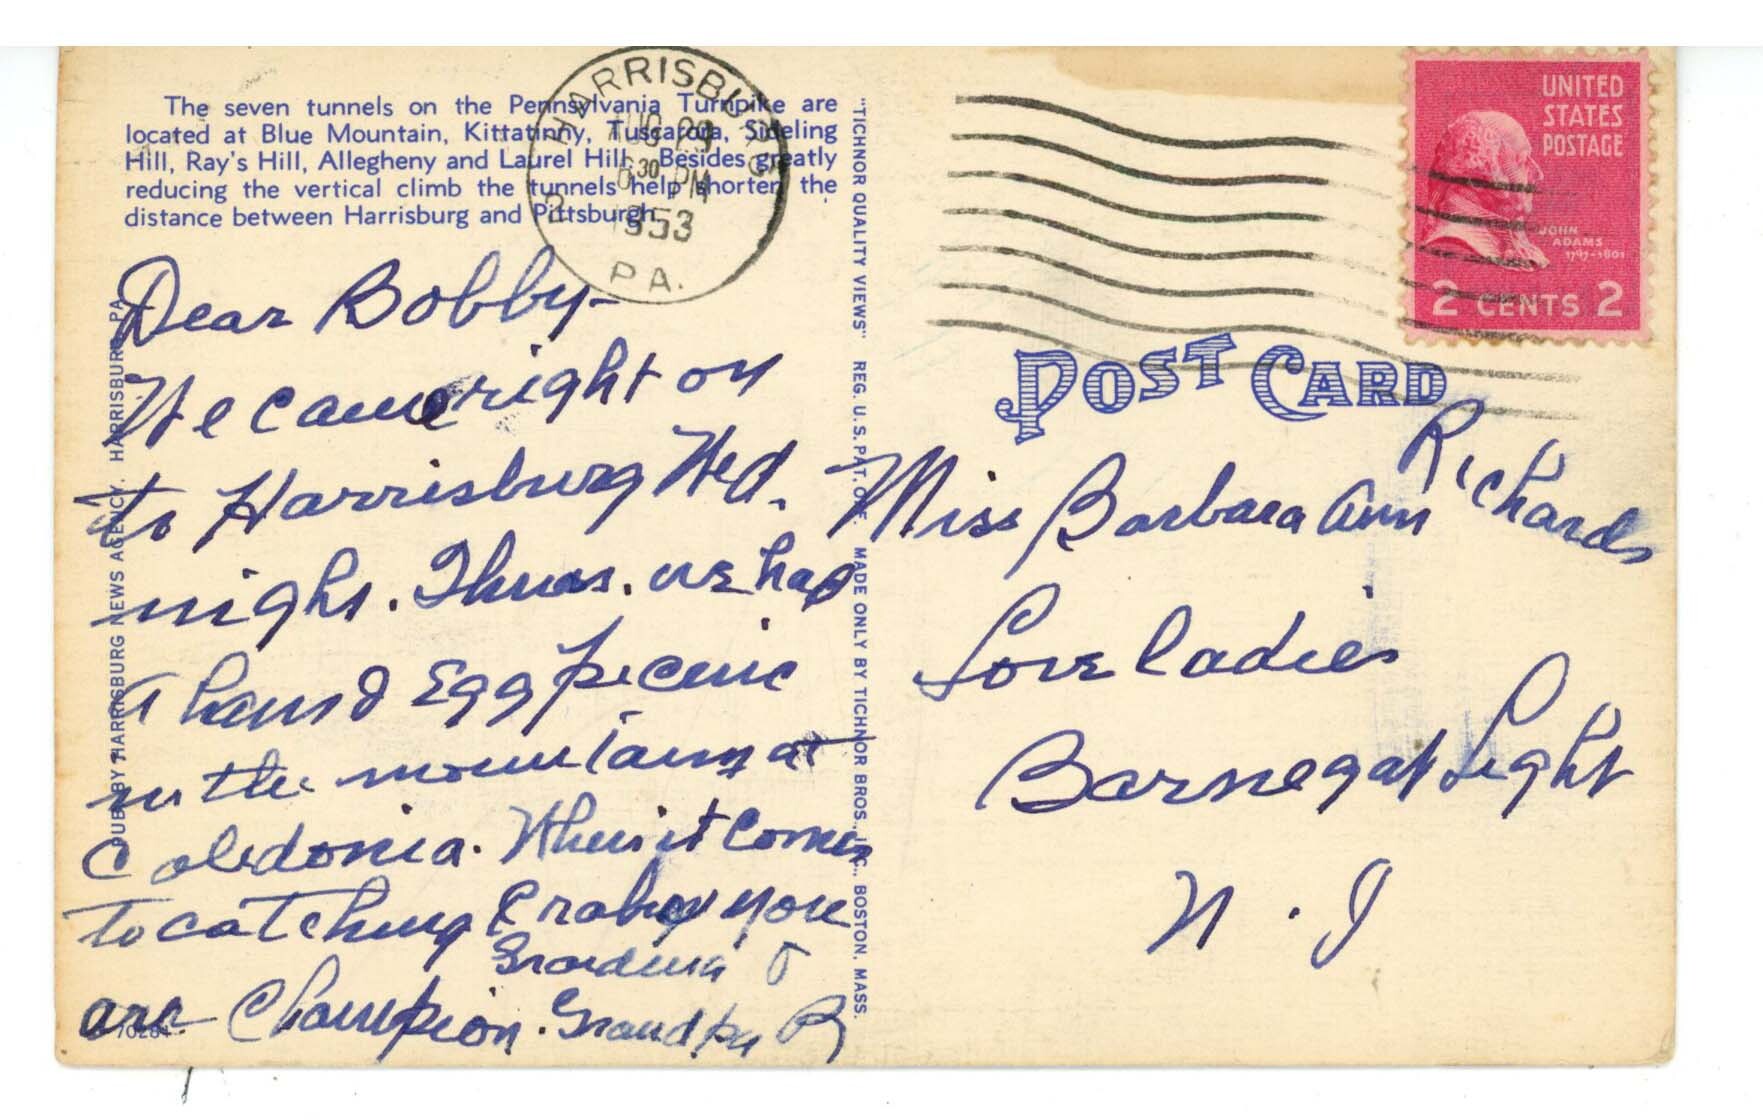 The seven tunnels on the Pennsylvania Turnpike are
located at Blue Mountain, Kittatinny, Tuscarora, Sideling
Hill, Ray's Hill, Allegheny and Laurel Hill. Besides greatly
reducing the vertical climb the tunnels help shorten the
distance between Harrisburg and Pittsburgh.
HARRISBURG
AUG 29
6 30 PM
1953
PA.
UNITED
STATES
POSTAGE
JOHN
ADAMS
1797-1801
2 CENTS 2
POST CARD
Dear Bobby-
We came right on
to Harrisburg Wed.
night. Thurs. we had
a ham & Egg picnic
in the mountains at
Caledonia. When it comes
to catching Crabs you
are Champion.
Grandma &
Grandpa R
PUB. BY HARRISBURG NEWS AGENCY, HARRISBURG, PA.
"TICHNOR QUALITY VIEWS" REG. U. S. PAT. OFF. MADE ONLY BY TICHNOR BROS., INC., BOSTON, MASS.
Miss Barbara Ann Richards
Loveladies
Barnegat Light
N. J